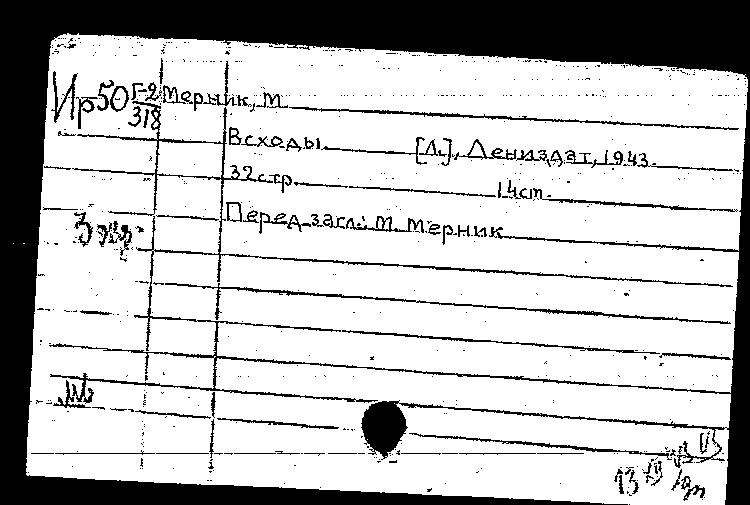 Ир50 Г-2/318 Мерник, М.
Всходы. [Л.], Лениздат, 1943.
32стр. 14см.
Перед загл.: М. Мерник
3 экз.
13